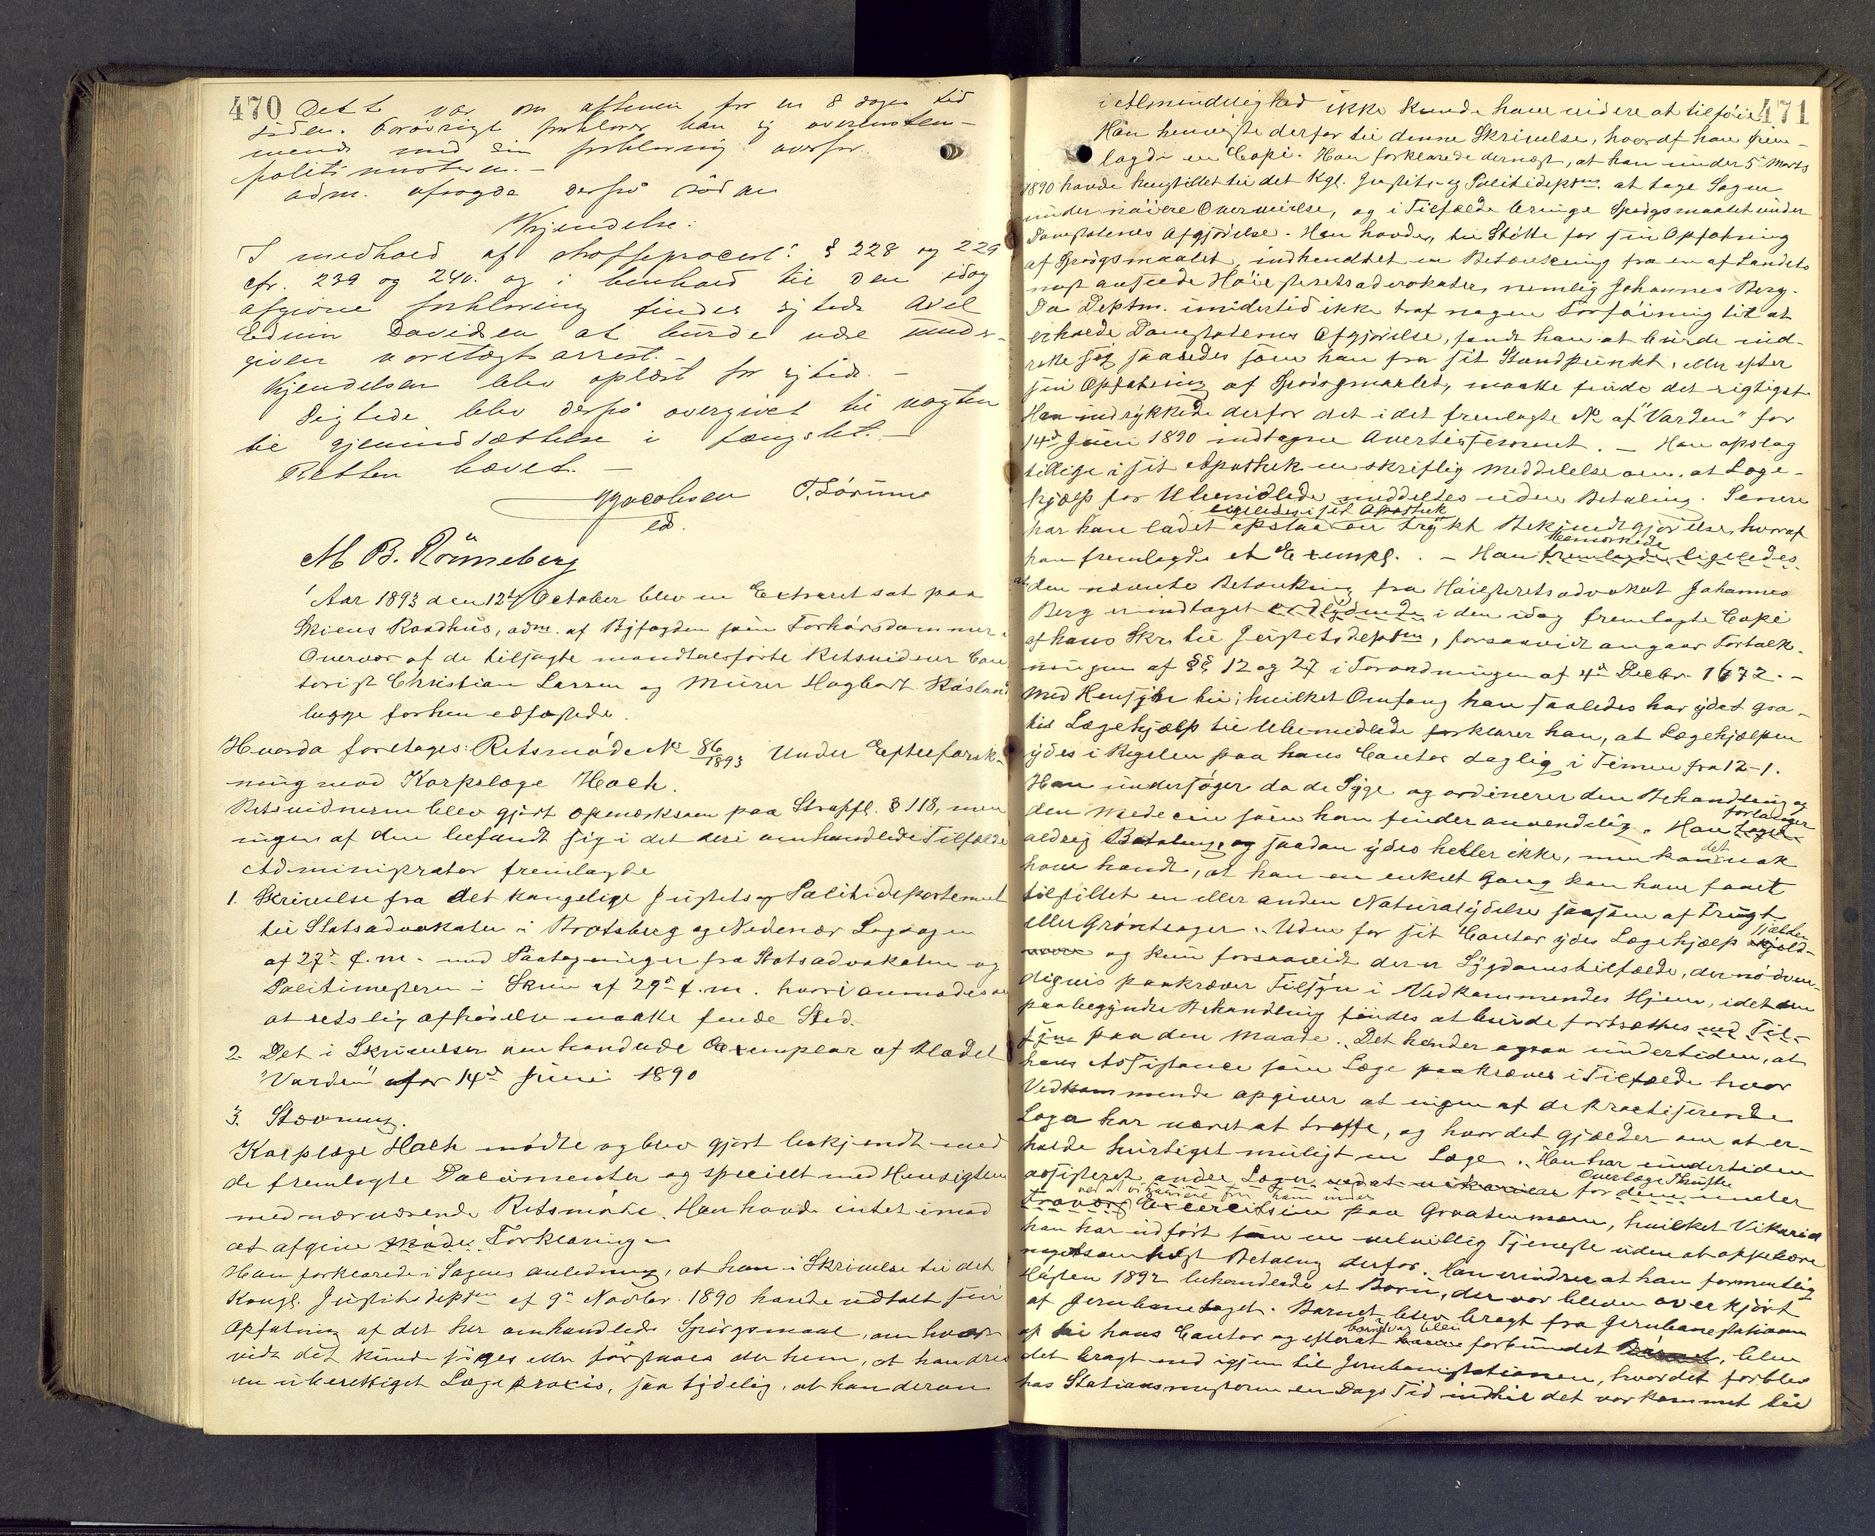 470
Dette var om aftenen for en 8 dager tid
siden. Forøvrigt forklarer han sig overensstem-
mende med sin forklaring overfor
politimesteren. -
adm. afsagde derpå sådan
Kjendelse:
I medhold af straffeprocesl. § 228 og 229
cfr. 239 og 240. og i henhold til den idag
afgivne forklaring findes sigtede Axel
Edvin Davidsen at burde være under-
given varetægtsarrest. -
Kjendelsen blev oplæst for sigtede. -
Sigtede blev derpå overgivet til vagten
til gjenindsættelse i fængslet. -
Retten hævet. -
Jacobsen T. Sørum
ed.
M B. Rønneberg
Aar 1893 den 12te October blev en Extraret sat paa
Skiens Raadhus, adm. af Byfogden som Forhørsdommer i
Overvær af de tilsagte mandtalsførte Retsvidner Can-
torist Christian Larsen og Murer Hagbart Kåsland
begge forhen edfæstede.
Hvorda foretoges: Retsmøde No 86/1893 Under Efterforsk-
ning mod Korpslæge Hoch.
Retsvidnerne blev gjort opmærksom paa Straffl. § 118, men
ingen af dem befandt sig i det deri omhandlede Tilfælde
Administrator fremlagde
1. Skrivelse fra det kongelige Justits og Politidepartement
til Statsadvokaten i Bratsberg og Nedenæs Lagsogn
af 27de f. m. med Paategninger fra Statsadvokaten og
Politimesteren i Skien af 29de f. m. hvori anmodes om
at retslig afhørelse maatte finde Sted.
2. Det i Skrivelsen omhandlede Exemplar af Bladet
"Varden" for 14de Juni 1890
3. Stævning.
Korpslæge Hoch mødte og blev gjort bekjendt med
de fremlagte Documenter og specielt med Hensigten
med nærværende Retsmøde. Han havde intet imod
at afgive Forklaring
Han forklarede i Sagens anledning, at han i Skrivelse til det
Kongl. Justitsdeptm af 9de Novbr. 1890 havde udtalt sin
Opfatning af det her omhandlede Spørgsmaal, om hvor-
vidt det kunde siges eller forstaaes derhen, at han drev
en uberettiget Lægepraxis, saa tydelig, at han derom
471
i Almindelighed ikke kunde have videre at tilføie
Han henviste derfor til denne Skrivelse, hvoraf han frem-
lagde en Copi. Han forklarede dernæst, at han under 5 Marts
1890 havde henstillet til det Kgl. Justits- og Politideptm. at tage Sagen
under nøiere Overveielse, og i Tilfælde bringe Spørgsmaalet under
Domstolenes Afgjørelse. Han havde, til Støtte for sin Opfatning
af Spørgsmaalet, indhendtet en Betænkning fra en af Landets
mest ansete Høiesteretsadvokater, nemlig Johannes Berg.
Da Deptm. imidlertid ikke traf nogen Forføining til at
erholde Domstolenes Afgjørelse, fandt han at burde ind-
rette sig saaledes som han fra sit Standpunkt, eller efter
sin Opfatning af Spørgsmaalet, maatte finde det rigtigst.
Han indrykkede derfor det i det fremlagte No af "Varden" for
14de Juni 1890 indtagne Avertissement. - Han opslog
tillige i sit Apothek en skriftlig Meddelelse om, at Læge-
hjælp for Ubemidlede meddeltes uden Betaling. Senere
ligeledes i sit Apothek
har han ladet opslaa en trykt Bekjendtgjørelse, hvoraf
Bemærkede
han fremlagde et Exempl. - Han fremlagde ligeledes
at den nævnte Betænkning fra Høiesteretsadvokat Johannes
Berg er indtaget ordlydende i den idag fremlagte Copi
af hans Skr. til Justitsdeptm, forsaavidt angaar Fortolk-
ningen af §§ 12 og 27 i Forordningen af 4de Decbr. 1672. -
Med Hensyn til, i hvilket Omfang han saaledes har ydet gra-
tis Lægehjælp til Ubemidlede forklarer han, at Lægehjælpen
ydes i Regelen paa hans Contor daglig i Timen fra 12-1.
Han undersøger da de Syge og ordinerer den Behandling og
den Medecin som han finder anvendelig. Han forlanger
aldrig Betaling, og saadan ydes heller ikke, men det kan nok
have hændt, at han en enkelt Gang kan have faaet
tilstillet en eller anden Naturalydelse saasom af Frugt
eller Grøntsager. Uden for sit Contor ydes Lægehjælp sjelden
og kun forsaavidt der er Sygdomstilfælde, der nødven-
digvis paakræver Tilsyn i Vedkommendes Hjem, idet en
paabegyndt Behandling findes at burde fortsættes ved Til-
syn paa den Maade. Det hænder ogsaa undertiden, at
hans Assistance som Læge paakræves i Tilfælde hvor
Vedkommende opgiver at ingen af de practiserende
Læger har været at træffe, og hvor det gjælder om at er-
holde hurtigst muligt en Læge. Han har undertiden
assisteret andre Læger ved at vikariere for dem under
Overlæge Thuste
ved at vikariere for ham under
Excercitsien paa Gråtenmoen, hvilket Vikariat
han har udført som en velvillig Tjeneste uden at oppebære
nogetsomhelst Betaling derfor. Han erindrer at han formentlig
Høsten 1892 behandlede et Barn, der var bleven overkjørt
af Jernbanetoget. Barnet blev bragt fra Jernbanestationen
op til hans Contor og efterat barnet var blevet forbundet, blev
det bragt ned igjen til Jernbanestationen, hvor det forblev
hos Stationsmesteren en Dags Tid indtil det var kommet til